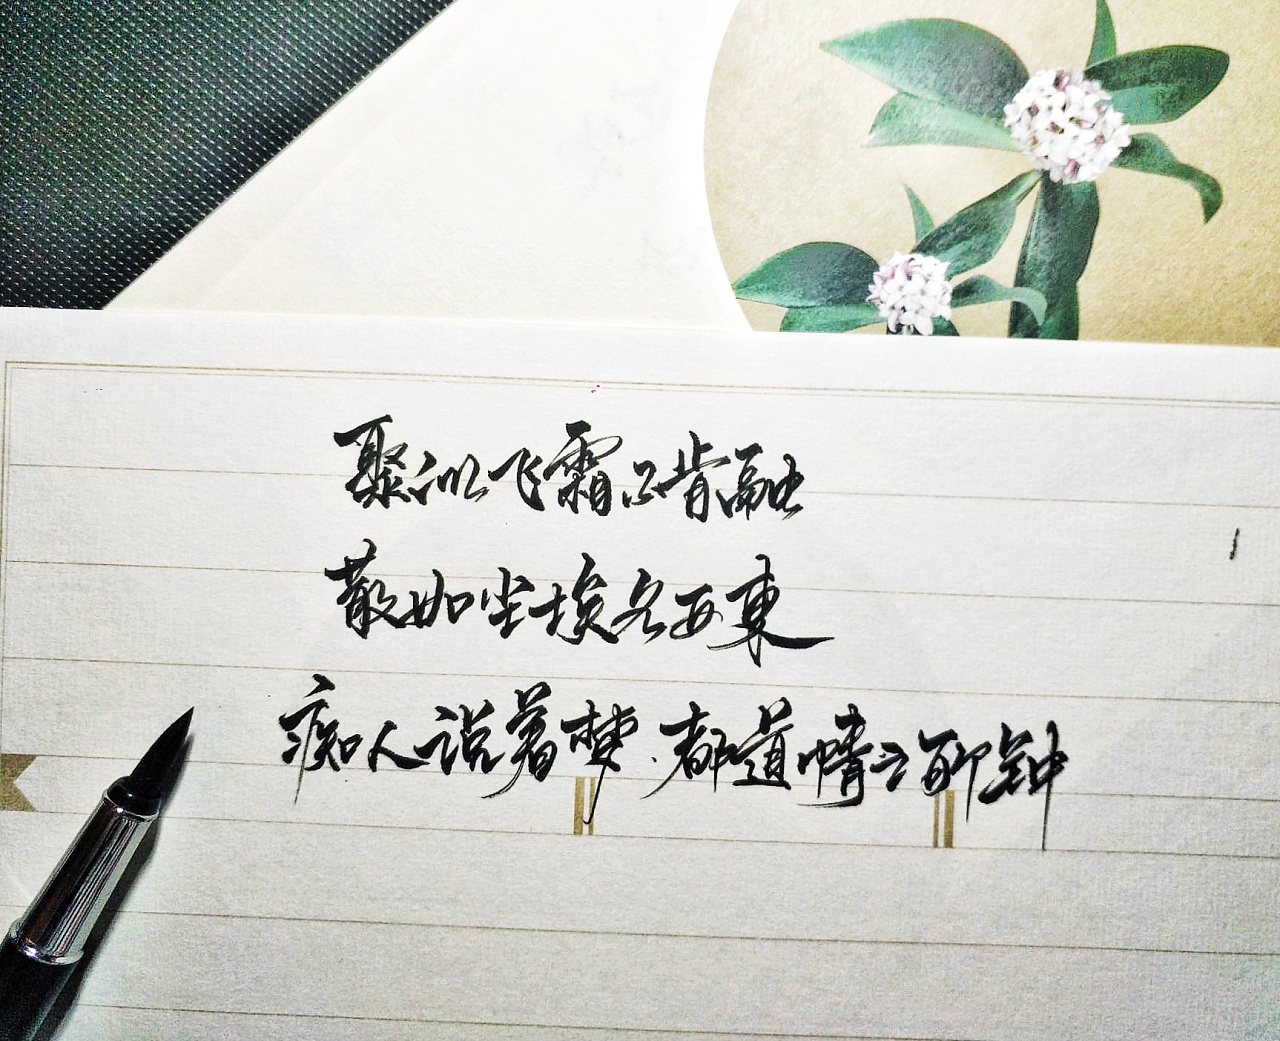 聚似飞霜不肯融
散如尘埃各西東
痴人说着梦.都道情之所钟